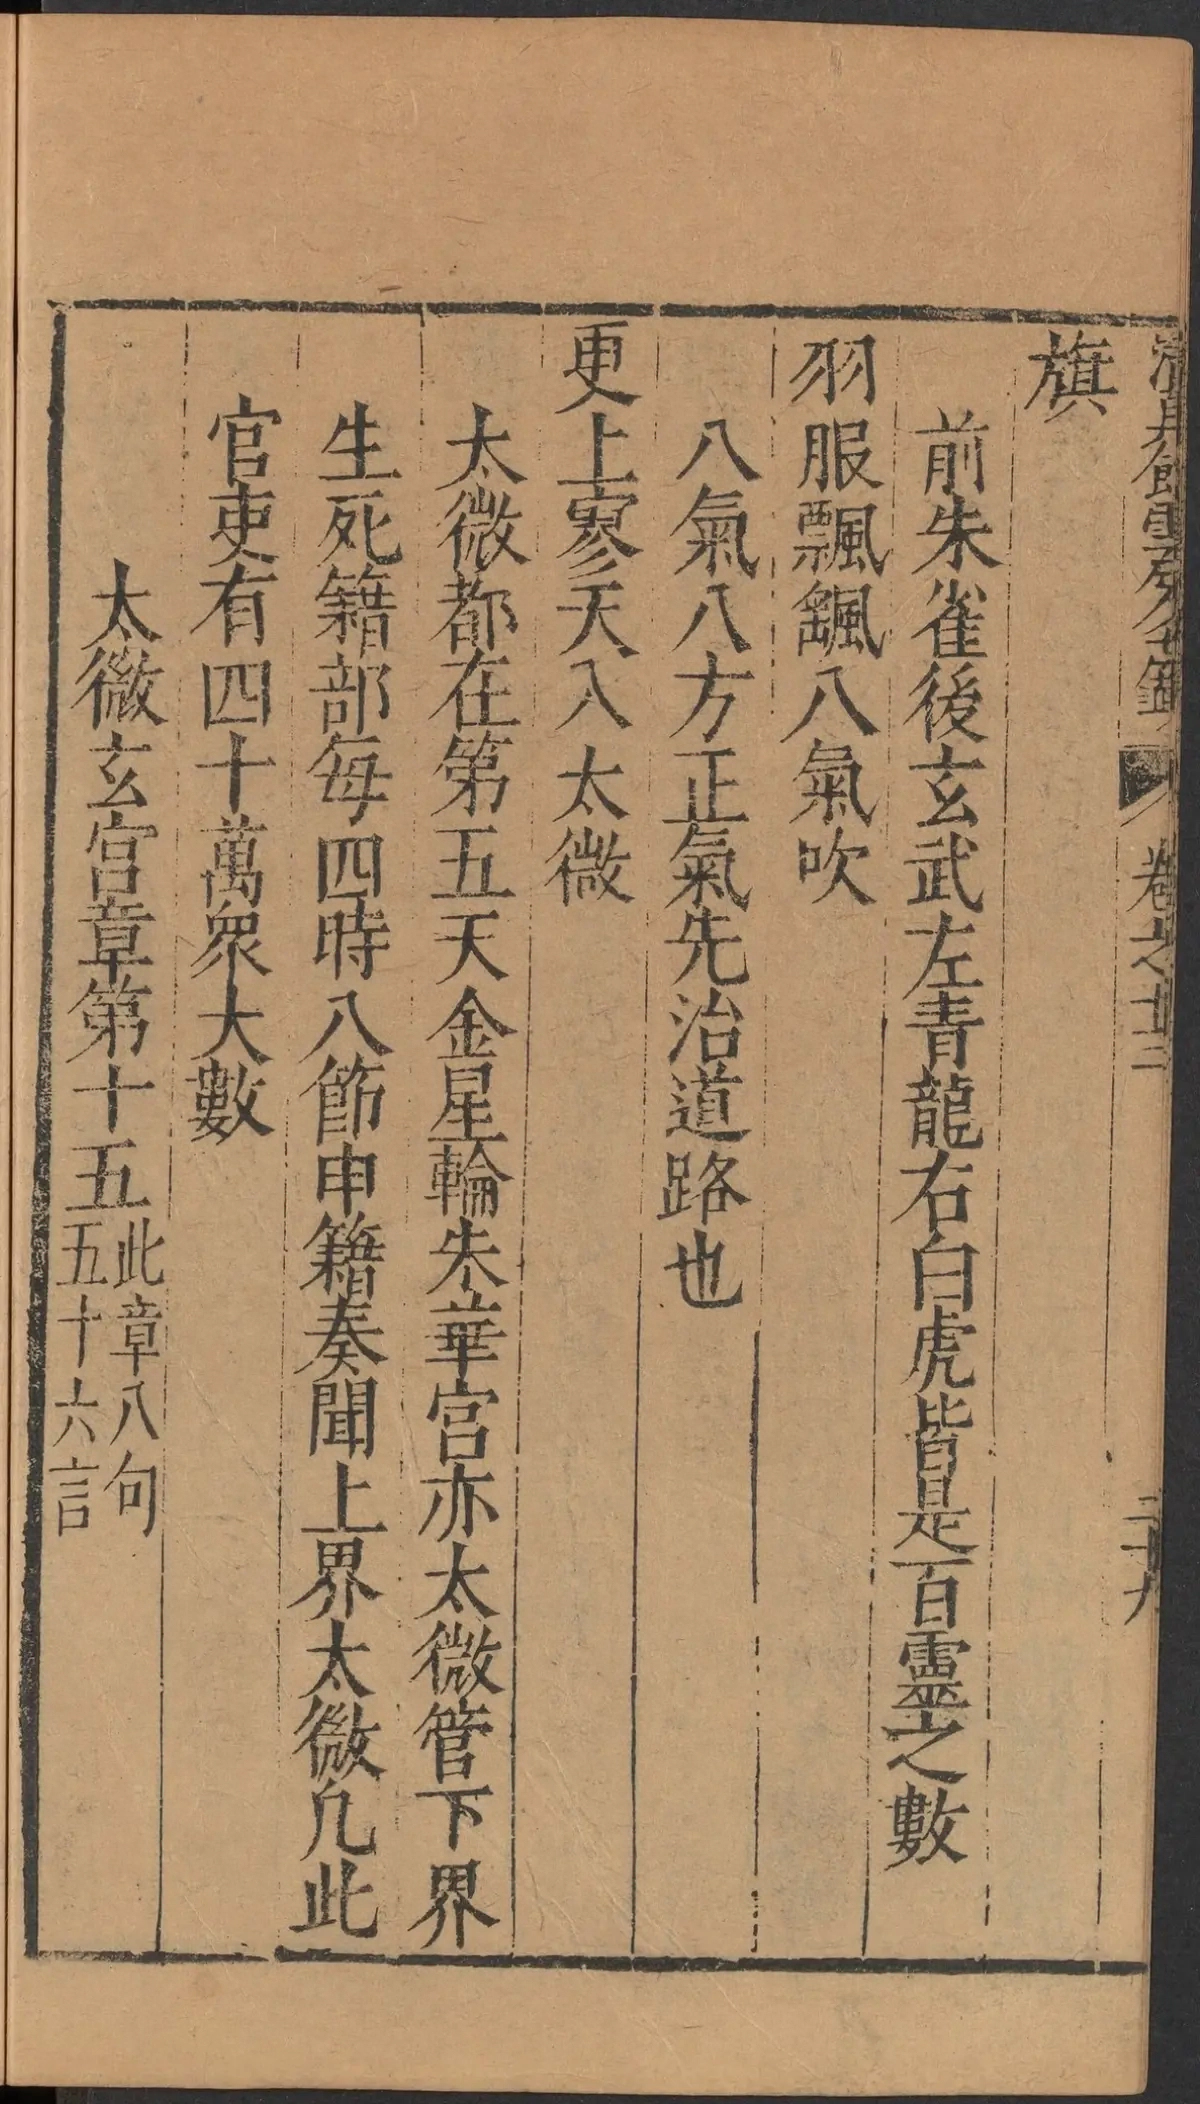 卷之廿三 二十九
旗
前朱雀後玄武左青龍右白虎皆是百靈之數
羽服飄飊八氣吹
八氣八方正氣先治道路也
更上寥天入太微
太微都在第五天金星輪朱華宮亦太微管下界
生死籍部每四時八節申籍奏聞上界太微凡此
官吏有四十萬眾大數
太微玄宮章第十五
此章八句
五十六言